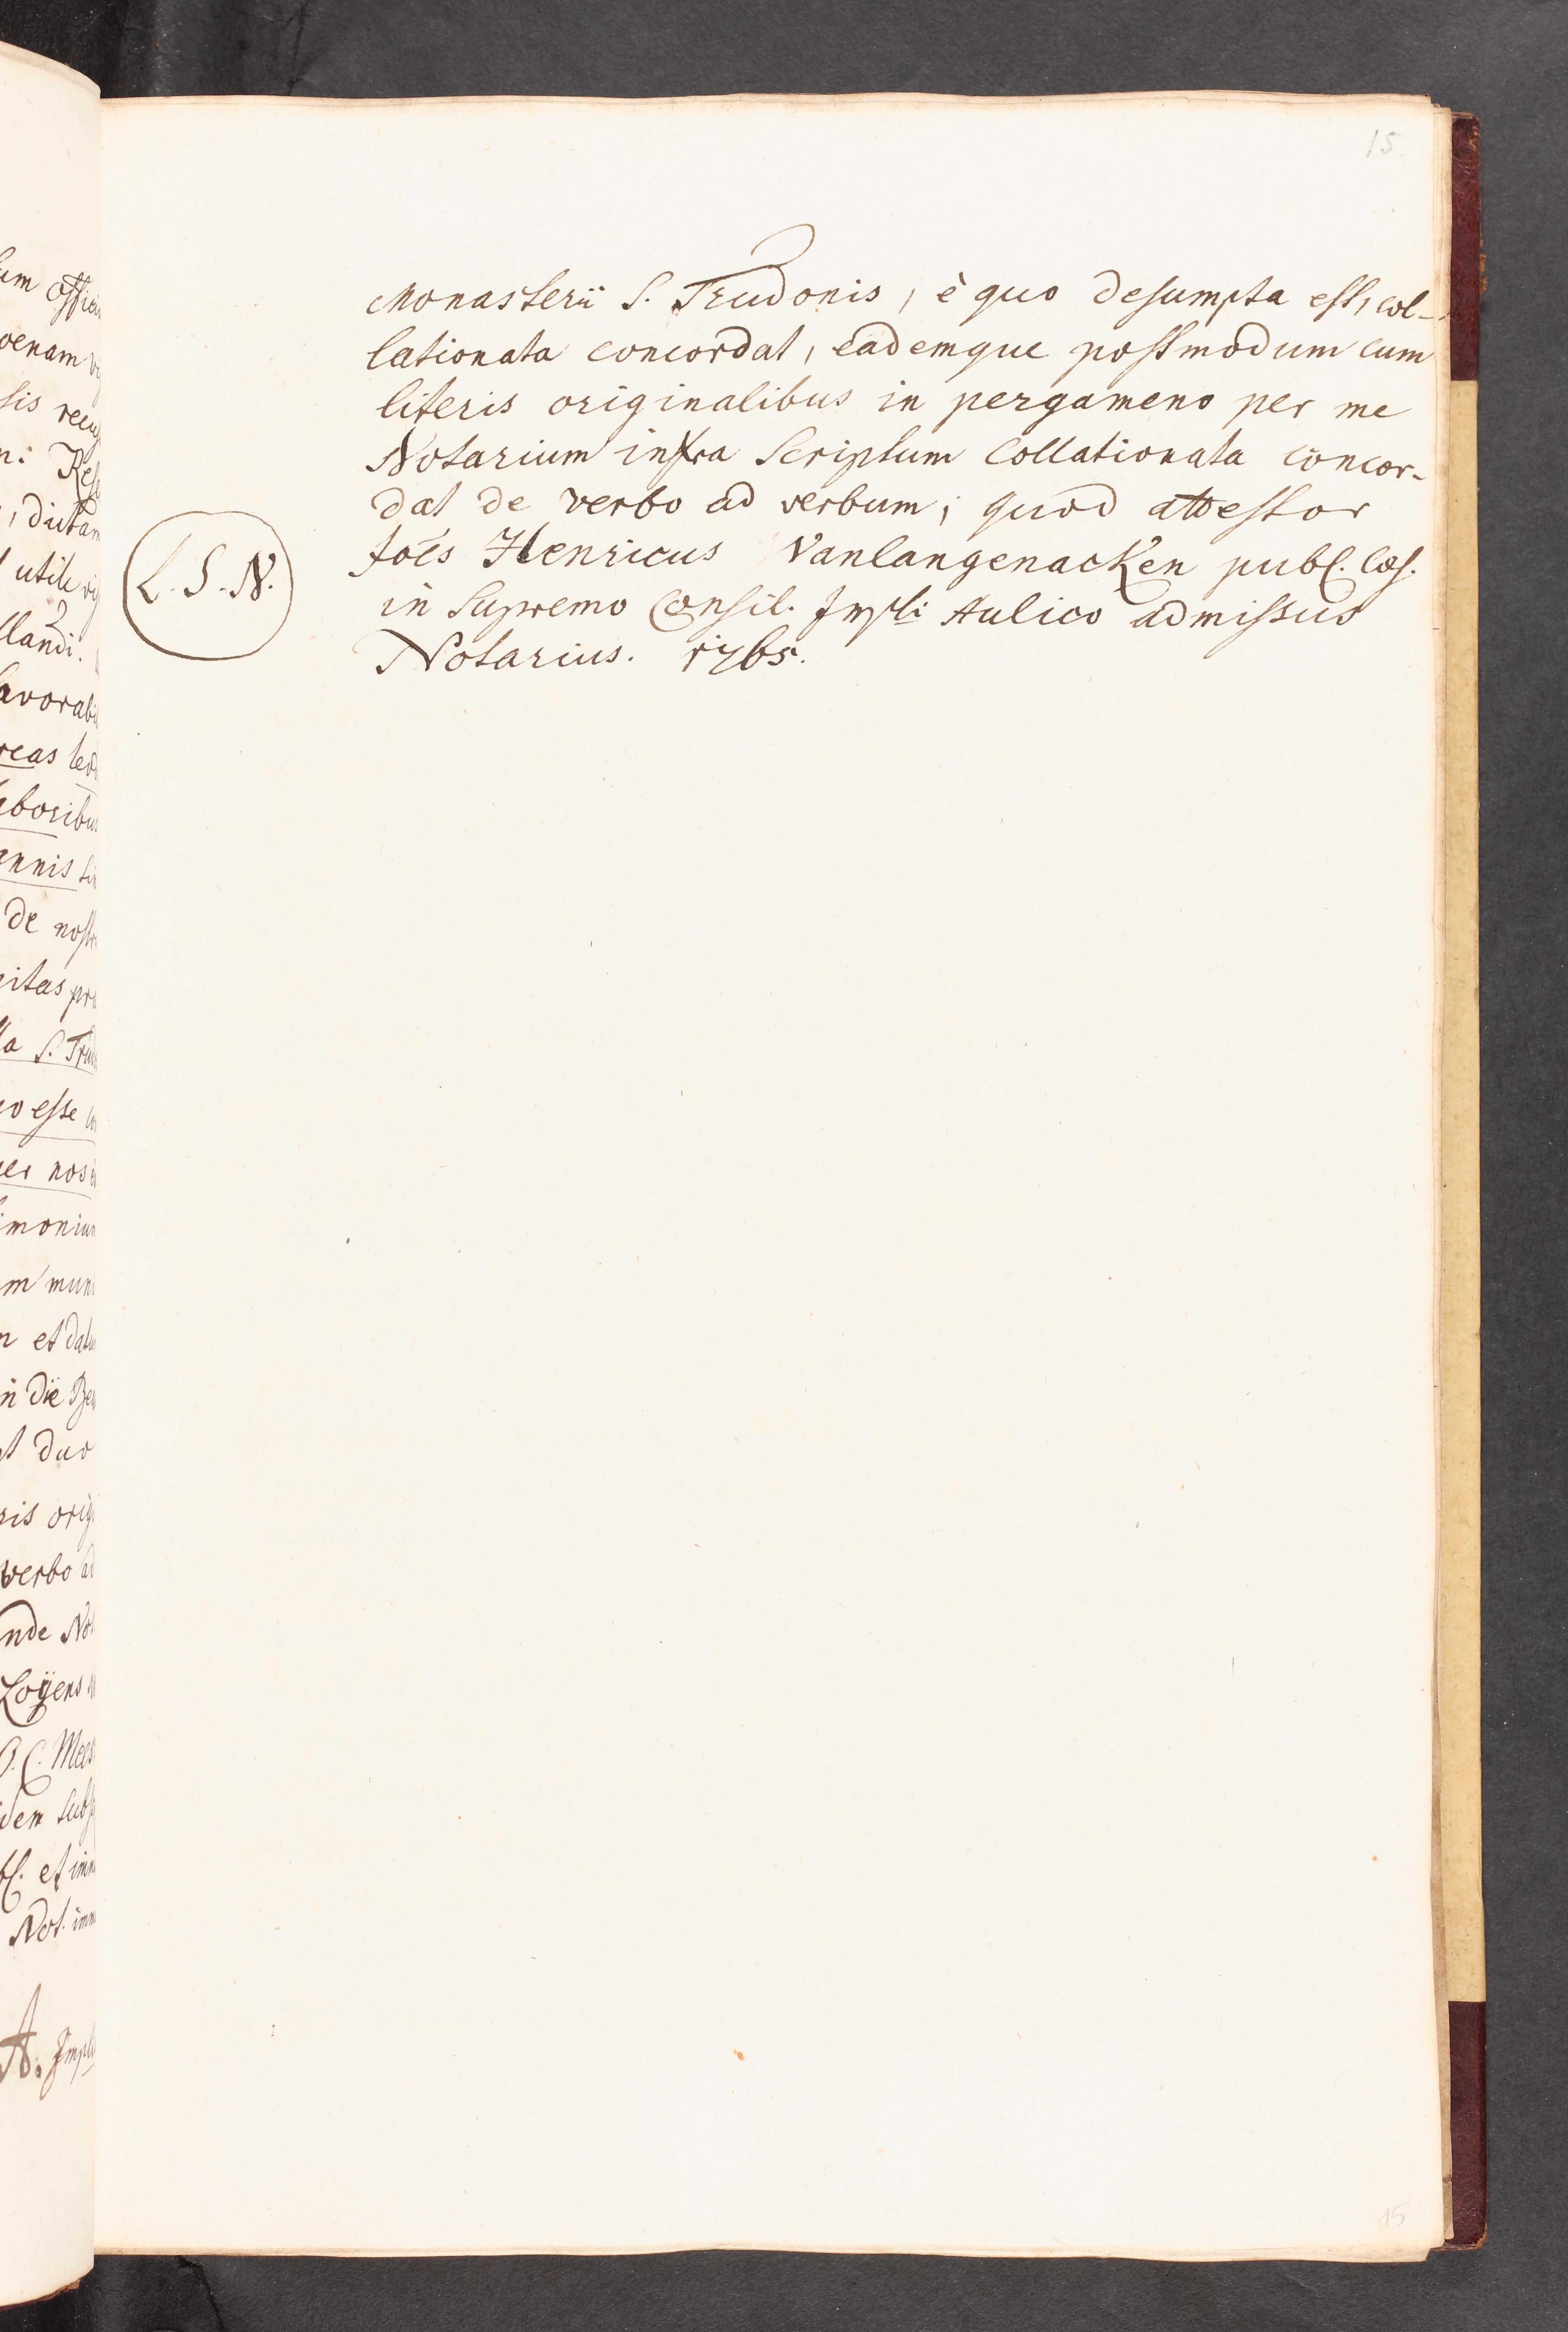 15.
Monasterii S. Trudonis, è quo desumpta est, col-
lationata concordat, eademque postmodum cum
literis originalibus in pergameno per me
Notarium infra scriptum collationata concor-
dat de verbo ad verbum; quod attestor
L. S. N.
Joẽs Henricus Vanlangenacken publ. Cæs.
in Supremo Consil. Impli: Aulico admissus
Notarius. 1765.
15
um offici
venam
sis
n: Res
, dictam
utile
llandi.
avorabi
reas
aboribus
annis
de nostr
itas pr
la S. Tru
o esse
er nos
imonium
m mun
n et datu
in die
t duo
ris orig
verbo ad
nde Not
Loÿens
Mees
idem subs
et
Not. imm
A. Impli